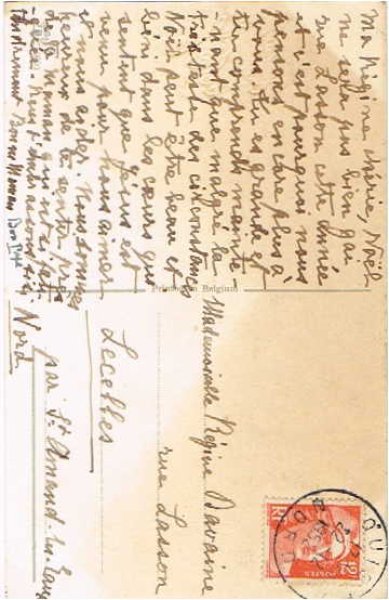 Ma Régine chérie, Noël
ne sera pas bien gai
rue Lasson cette année
et c'est pourquoi nous
pensons encore plus à
vous. Tu es grande et
tu comprends mainte
-nant que malgré la
tristesse des circonstances
Noël peut être beau et
béni dans les cœurs qui
sentent que Jésus est
venu pour nous aimer
et nous aider. Nous sommes
heureux de te sentir près
de ta maman
tendrement Bonne Maman
Printed in Belgium
Mademoiselle Régine Davaine
rue Lasson
Lecelles
par St Amand-les-Eaux
Nord
12
POSTES
RF
NORD